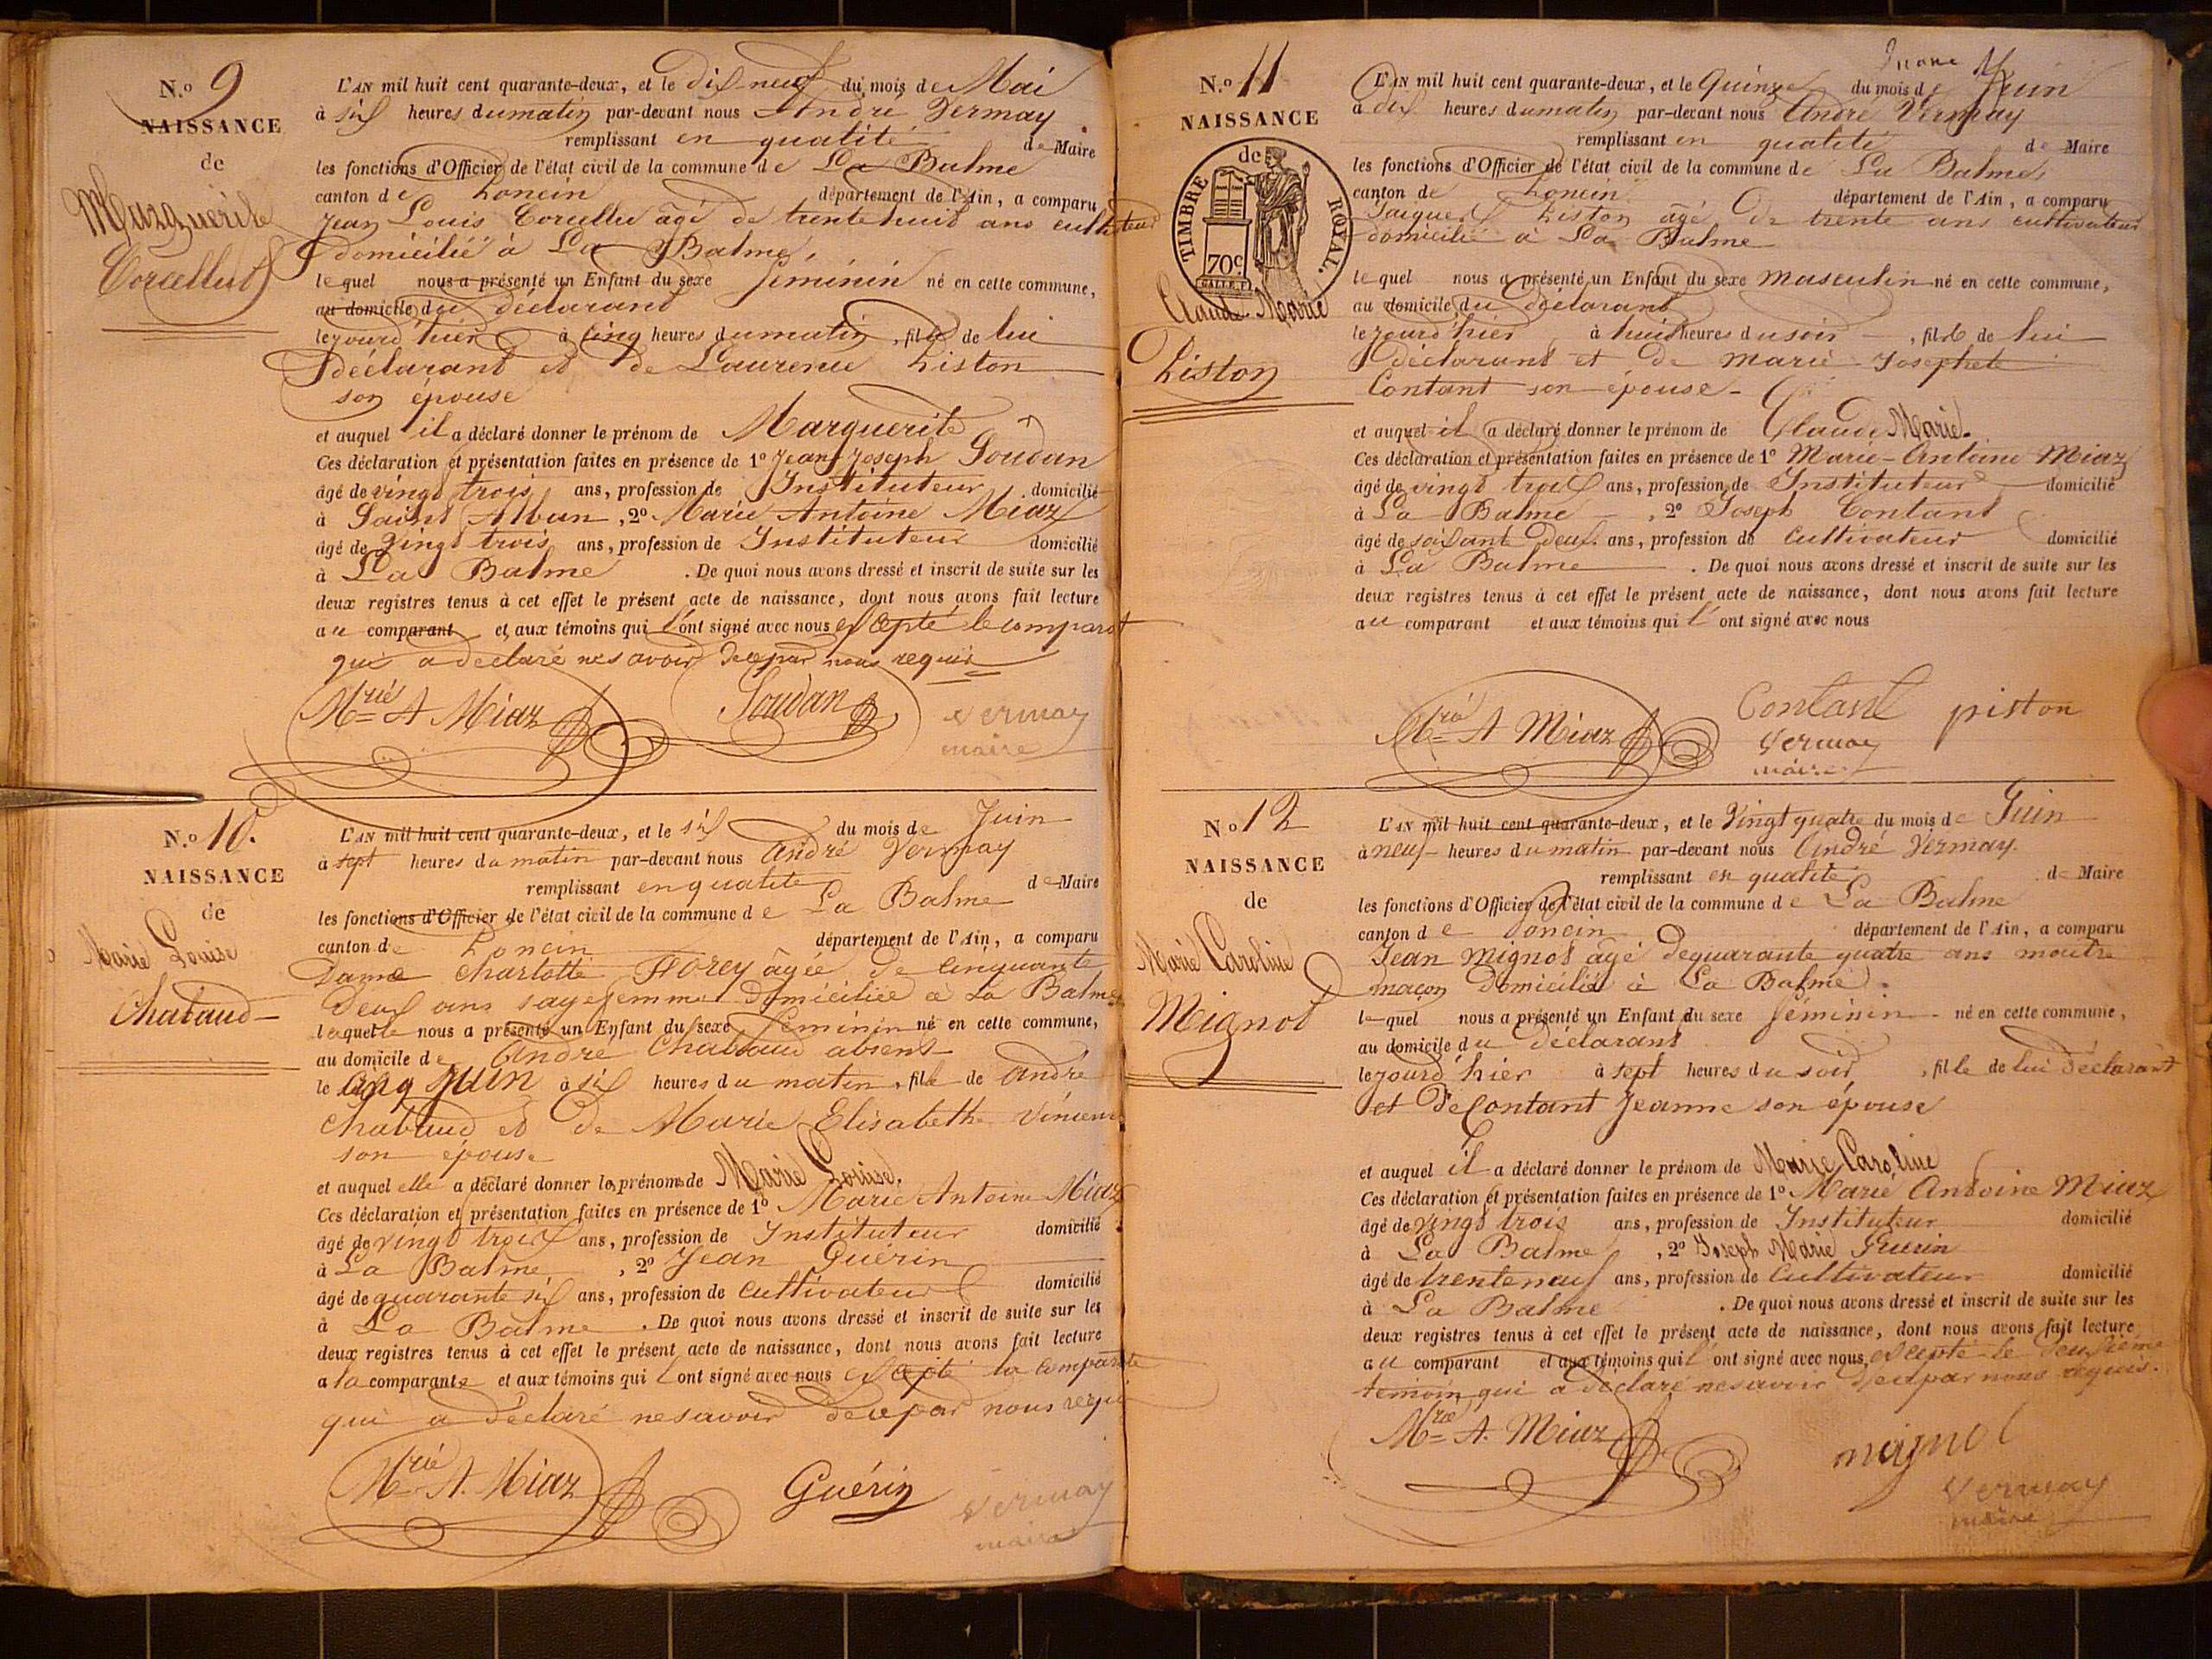 N.º 9
NAISSANCE
de
Marguerite
Corcellut
L'AN mil huit cent quarante-deux, et le dix neuf du mois de Mai
à six heures du matin par-devant nous André Vermay
remplissant en qualité de Maire
les fonctions d'Officier de l'état civil de la commune de La Balme
canton de Poncin département de l'Ain, a comparu
Jean Louis âgé de trente huit ans cultivateur
domicilié à La Balme,
lequel nous a présenté un Enfant du sexe féminin né en cette commune,
au domicile du déclarant
le jourd'hier à cinq heures du matin, fille de lui
déclarant et de Laurence Piston
son épouse
et auquel il a déclaré donner le prénom de Marguerite
Ces déclaration et présentation faites en présence de 1º Jean Joseph Soudan
âgé de vingt trois ans, profession de Instituteur domicilié
à Saint Alban, 2º Marie Antoine Miaz
âgé de vingt trois ans, profession de Instituteur domicilié
à La Balme. De quoi nous avons dressé et inscrit de suite sur les
deux registres tenus à cet effet le présent acte de naissance, dont nous avons fait lecture
au comparant et aux témoins qui l'ont signé avec nous excepté le comparant
qui a déclaré ne savoir de ce par nous requis
Mrie A Miaz Soudan Vermay
maire
N.º 10.
NAISSANCE
de
Marie Louise
Chabaud
L'AN mil huit cent quarante-deux, et le six du mois de Juin
à sept heures du matin par-devant nous André Vermay
remplissant en qualité de Maire
les fonctions d'Officier de l'état civil de la commune de La Balme
canton de Poncin département de l'Ain, a comparu
Dame Charlotte Florey âgée de cinquante
deux ans sagefemme domiciliée à La Balme
laquelle nous a présenté un Enfant du sexe féminin né en cette commune,
au domicile de André Chabaud absent
le cinq Juin à six heures du matin, fille de André
Chabaud et de Marie Elisabethe Vincent
son épouse
et auquel elle a déclaré donner les prénoms de Marie Louise.
Ces déclaration et présentation faites en présence de 1º Marie Antoine Miaz
âgé de vingt trois ans, profession de Instituteur domicilié
à La Balme, 2º Jean Guérin
âgé de quarante six ans, profession de Cultivateur domicilié
à La Balme. De quoi nous avons dressé et inscrit de suite sur les
deux registres tenus à cet effet le présent acte de naissance, dont nous avons fait lecture
a la comparante et aux témoins qui l'ont signé avec nous excepté la comparante
qui a déclaré ne savoir de ce par nous requis
Mrie A. Miaz Guérin Vermay
maire
N.º 11
NAISSANCE
de
TIMBRE ROYAL.
70c
Claude Marie
Piston
L'AN mil huit cent quarante-deux, et le Quinze du mois de Juin
à dix heures du matin par-devant nous André Vermay
remplissant en qualité de Maire
les fonctions d'Officier de l'état civil de la commune de La Balme
canton de Poncin département de l'Ain, a comparu
Jacques Piston âgé de trente ans cultivateur
domicilié à La Balme
lequel nous a présenté un Enfant du sexe masculin né en cette commune,
au domicile du déclarant
le jourd'hier à huit heures du soir, fils de lui
déclarant et de marie Josephete
Contant son épouse
et auquel il a déclaré donner le prénom de Claude Marie.
Ces déclaration et présentation faites en présence de 1º Marie-Antoine Miaz
âgé de vingt trois ans, profession de Instituteur domicilié
à La Balme, 2º Joseph Contant
âgé de soixante deux ans, profession de Cultivateur domicilié
à La Balme. De quoi nous avons dressé et inscrit de suite sur les
deux registres tenus à cet effet le présent acte de naissance, dont nous avons fait lecture
au comparant et aux témoins qui l'ont signé avec nous
Mrie A Miaz Contant piston
Vermay
maire
Nº 12
NAISSANCE
de
Marie Caroline
Mignot
L'AN mil huit cent quarante-deux, et le Vingt quatre du mois de Juin
à neuf heures du matin par-devant nous André Vermay.
remplissant en qualité de Maire
les fonctions d'Officier de l'état civil de la commune de La Balme
canton de Poncin département de l'Ain, a comparu
Jean Mignot âgé de quarante quatre ans maître
maçon domicilié à La Balme.
lequel nous a présenté un Enfant du sexe féminin né en cette commune,
au domicile du déclarant
le jourd'hier à sept heures du soir, fille de lui déclarant
et de Contant Jeanne son épouse
et auquel il a déclaré donner le prénom de Marie Caroline
Ces déclaration et présentation faites en présence de 1º Marie Antoine Miaz
âgé de vingt trois ans, profession de Instituteur domicilié
à La Balme, 2º Joseph Marie Guerin
âgé de trente neuf ans, profession de Cultivateur domicilié
à La Balme. De quoi nous avons dressé et inscrit de suite sur les
deux registres tenus à cet effet le présent acte de naissance, dont nous avons fait lecture
au comparant et aux témoins qui l'ont signé avec nous excepté le deuxième
témoin qui a déclaré ne savoir de ce par nous requis.
Mrie A. Miaz mignot
Vermay
maire